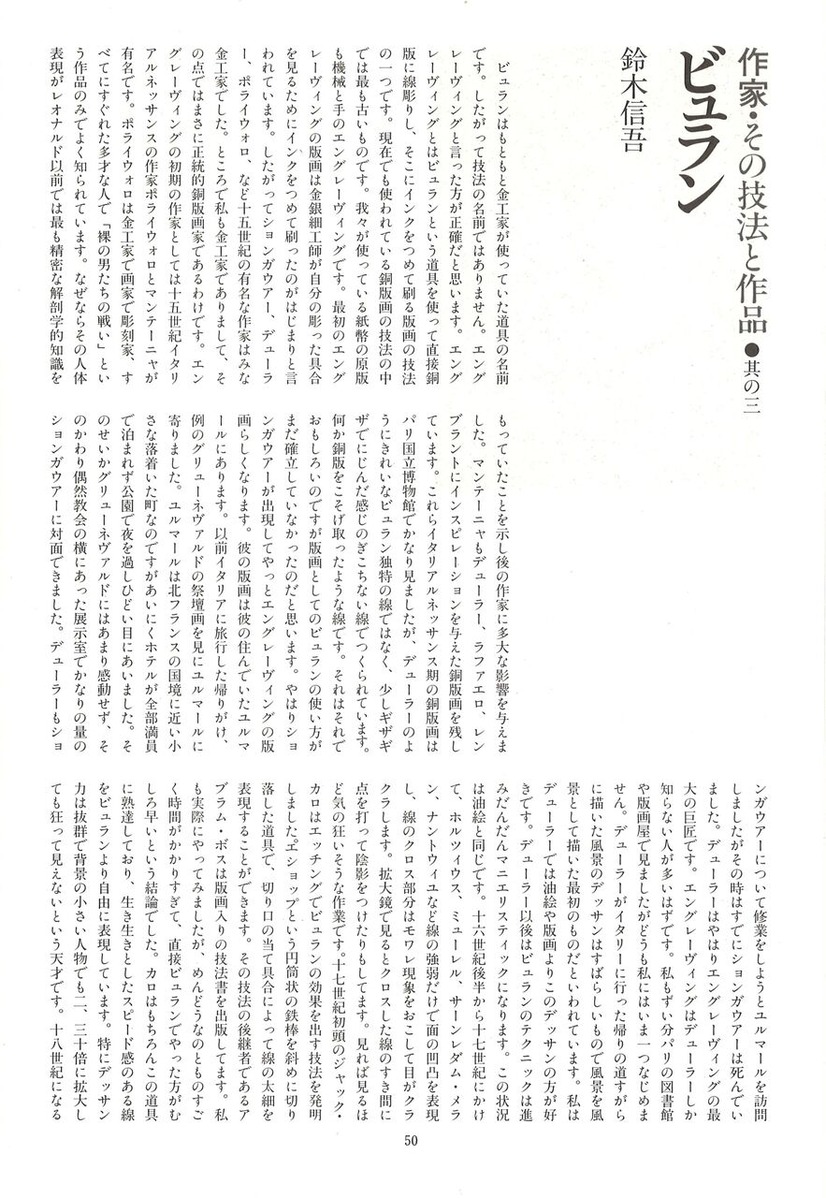 作家・その技法と作品●其の三
ビュラン
鈴木信吾
ビュランはもともと金工家が使っていた道具の名前
です。したがって技法の名前ではありません。エング
レーヴィングと言った方が正確だと思います。エング
レーヴィングとはビュランという道具を使って直接銅
版に線彫りし、そこにインクをつめて刷る版画の技法
の一つです。現在でも使われている銅版画の技法の中
では最も古いものです。我々が使っている紙幣の原版
も機械と手のエングレーヴィングです。最初のエング
レーヴィングの版画は金銀細工師が自分の彫った具合
を見るためにインクをつめて刷ったのがはじまりと言
われています。したがってションガウアー、デューラ
ー、ポライウォロ、など十五世紀の有名な作家はみな
金工家でした。ところで私も金工家でありまして、そ
の点ではまさに正統的銅版画家であるわけです。エン
グレーヴィングの初期の作家としては十五世紀イタリ
アルネッサンスの作家ポライウォロとマンテーニャが
有名です。ポライウォロは金工家で画家で彫刻家、す
べてにすぐれた多才な人で「裸の男たちの戦い」とい
う作品のみでよく知られています。なぜならその人体
表現がレオナルド以前では最も精密な解剖学的知識を
もっていたことを示し後の作家に多大な影響を与えま
した。マンテーニャもデューラー、ラファエロ、レン
ブラントにインスピレーションを与えた銅版画を残し
ています。これらイタリアルネッサンス期の銅版画は
パリ国立博物館でかなり見ましたが、デューラーのよ
うにきれいなビュラン独特の線ではなく、少しギザギ
ザでにじんだ感じのぎこちない線でつくられています。
何か銅版をこそげ取ったような線です。それはそれで
おもしろいのですが版画としてのビュランの使い方が
まだ確立していなかったのだと思います。やはりショ
ンガウアーが出現してやっとエングレーヴィングの版
画らしくなります。彼の版画は彼の住んでいたユルマ
ールにあります。以前イタリアに旅行した帰りがけ、
例のグリューネヴァルドの祭壇画を見にユルマールに
寄りました。ユルマールは北フランスの国境に近い小
さな落着いた町なのですがあいにくホテルが全部満員
で泊まれず公園で夜を過しひどい目にあいました。そ
のせいかグリューネヴァルドにはあまり感動せず、そ
のかわり偶然教会の横にあった展示室でかなりの量の
ションガウアーに対面できました。デューラーもショ
ンガウアーについて修業をしようとユルマールを訪問
しましたがその時はすでにションガウアーは死んでい
ました。デューラーはやはりエングレーヴィングの最
大の巨匠です。エングレーヴィングはデューラーしか
知らない人が多いはずです。私もずい分パリの図書館
や版画屋で見ましたがどうも私にはいま一つなじめま
せん。デューラーがイタリーに行った帰りの道すがら
に描いた風景のデッサンはすばらしいもので風景を風
景として描いた最初のものだといわれています。私は
デューラーでは油絵や版画よりこのデッサンの方が好
きです。デューラー以後はビュランのテクニックは進
みだんだんマニエリスティックになります。この状況
は油絵と同じです。十六世紀後半から十七世紀にかけ
て、ホルツィウス、ミューレル、サーンレダム・メラ
ン、ナントウィユなど線の強弱だけで面の凹凸を表現
し、線のクロス部分はモワレ現象をおこして目がクラ
クラします。拡大鏡で見るとクロスした線のすき間に
点を打って陰影をつけたりもしてます。見れば見るほ
ど気の狂いそうな作業です。十七世紀初頭のジャック・
カロはエッチングでビュランの効果を出す技法を発明
しました。エショップという円筒状の鉄棒を斜めに切り
落した道具で、切り口の当て具合によって線の太細を
表現することができます。その技法の後継者であるア
ブラム・ボスは版画入りの技法書を出版してます。私
も実際にやってみましたが、めんどうなのとものすご
く時間がかかりすぎて、直接ビュランでやった方がむ
しろ早いという結論でした。カロはもちろんこの道具
に熟達しており、生き生きとしたスピード感のある線
をビュランより自由に表現しています。特にデッサン
力は抜群で背景の小さい人物でも二、三十倍に拡大し
ても狂って見えないという天才です。十八世紀になる
50